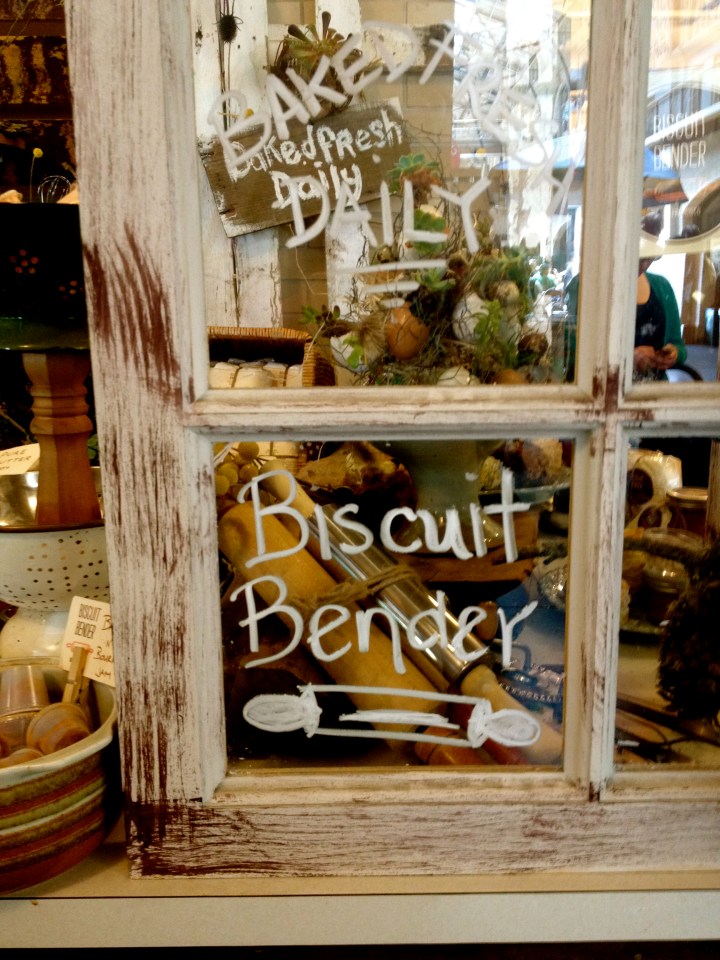 BAKED FRESH
DAILY
Bakedfresh
Daily
BISCUIT
BENDER
Biscuit
Bender
PURE
BISCUIT
BENDER